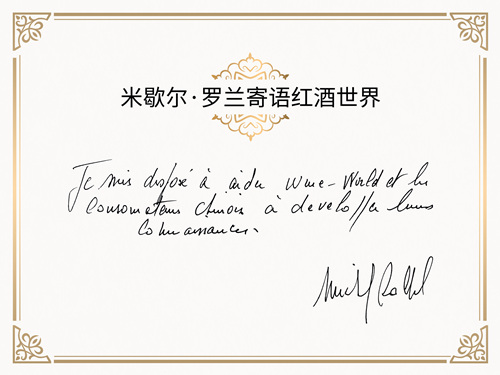 米歇尔·罗兰寄语红酒世界
Je suis disposé à aider Wine-World et les
consommateurs chinois à développer leurs
connaissances.